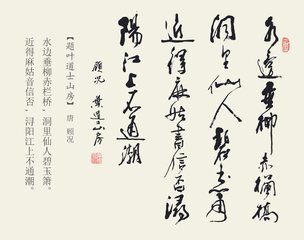 水邊垂柳赤欄橋
洞里仙人碧玉簫
近得麻姑書信否潯
陽江上不通潮
顧况 葉道士山房
【题叶道士山房】 唐 顾况
水边垂柳赤栏桥，洞里仙人碧玉箫。
近得麻姑音信否，浔阳江上不通潮。